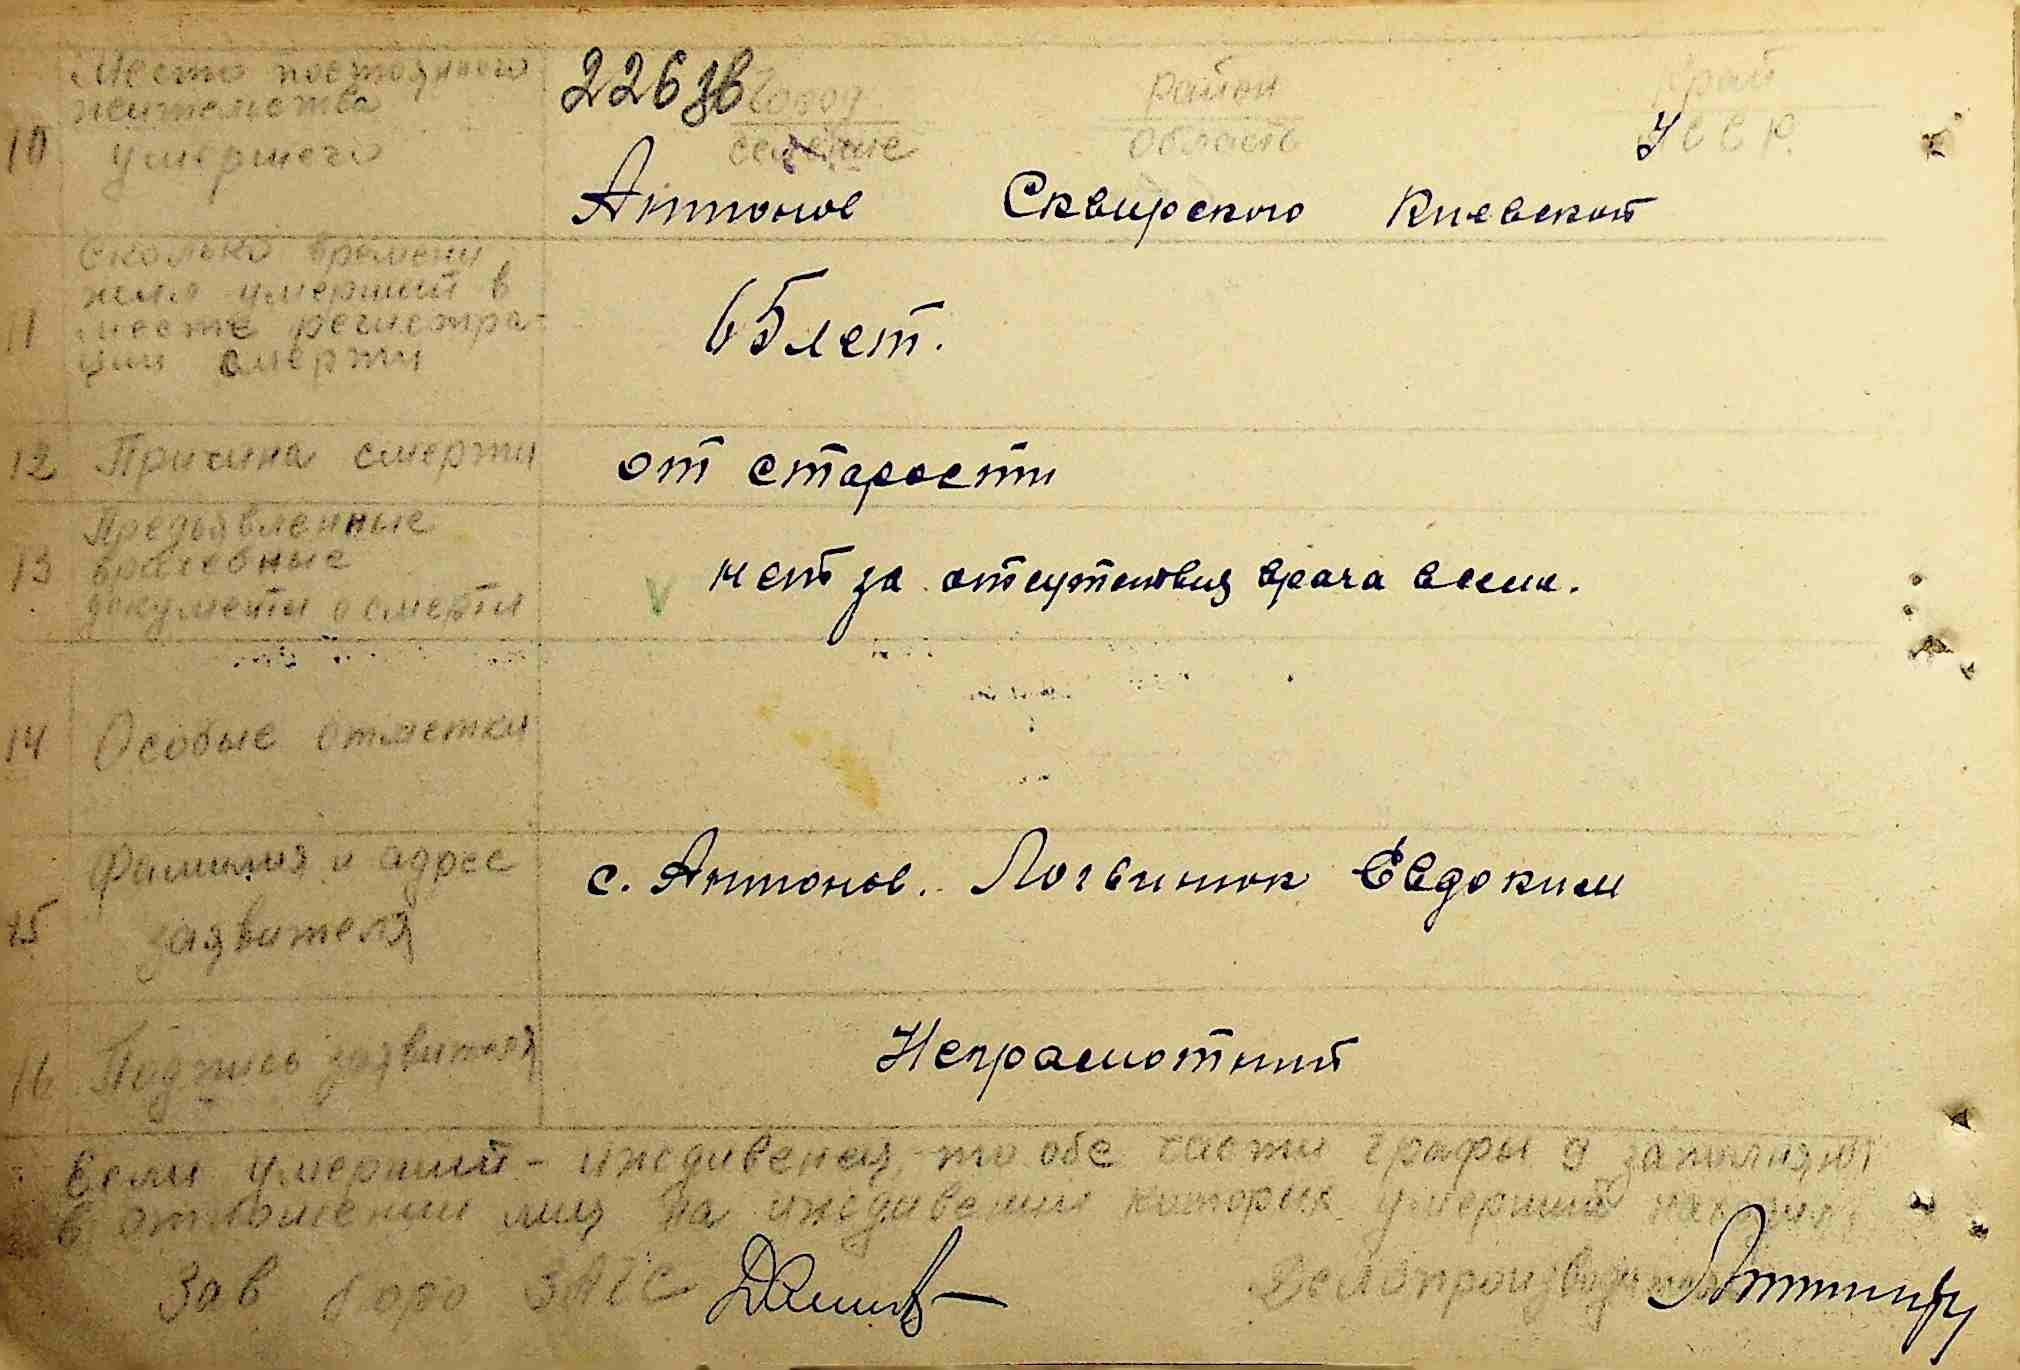 Место постоянного
жительства
10 умершего
226 зв город район край
селение область УССР.
Антонов Сквирского Киевской
Сколько времени
жил умерший в
11 месте регистра-
ции смерти
65 лет.
12 Причина смерти от старости
Предъявленные
13 врачебные
документы о смерти
V нет за отсутствия врача в селе.
14 Особые отметки
Фамилия и адрес
15 заявителя
с. Антонов. Логвинюк Евдоким
16 Подпись заявителя Неграмотний
Если умерший - иждивенец, то обе части графы 9 заполняют
в отношении лиц на иждивении которых умерший находился
Зав бюро ЗАГС Делопроизводитель